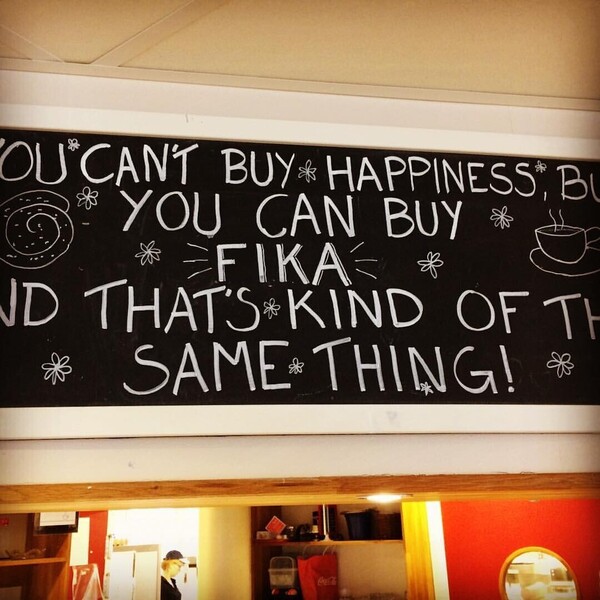 YOU CAN'T BUY HAPPINESS, BU
YOU CAN BUY
FIKA
ND THAT'S KIND OF TH
SAME THING!
Coca-Cola